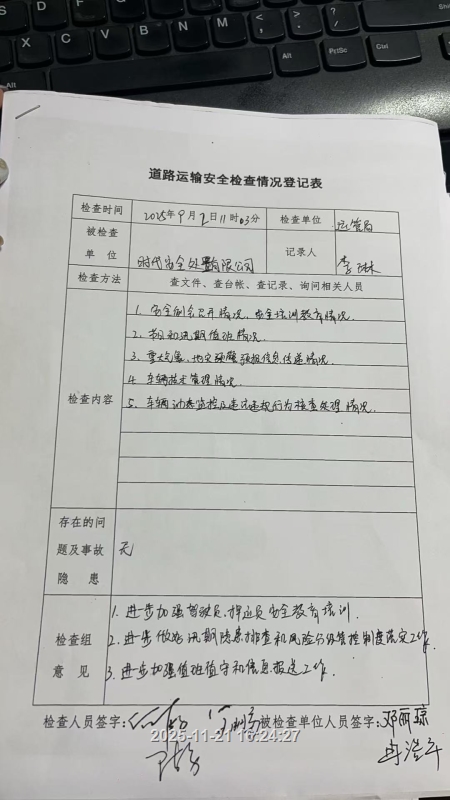 道路运输安全检查情况登记表
检查时间 2025年9月2日11时03分 检查单位 运管局
被检查单位 时代安全处置有限公司 记录人 李琳
检查方法 查文件、查台帐、查记录、询问相关人员
检查内容
1. 安全例会召开情况、安全培训教育情况.
2. 节日和汛期值班情况.
3. 重大气象、地灾预警预报信息传递情况.
4. 车辆技术管理情况.
5. 车辆动态监控及违法违规行为核查处理情况.
存在的问题及事故隐患 无
检查组意见
1. 进步加强驾驶员、押运员安全教育培训.
2. 进步做好汛期隐患排查和风险分级管控制度落实工作.
3. 进步加强值班值守和信息报送工作.
检查人员签字: 被检查单位人员签字: 邓丽琼
2025-11-21 16:24:27
Alt
PrtSc
Ctrl
Alt
Shift
X
C
V
B
N
M